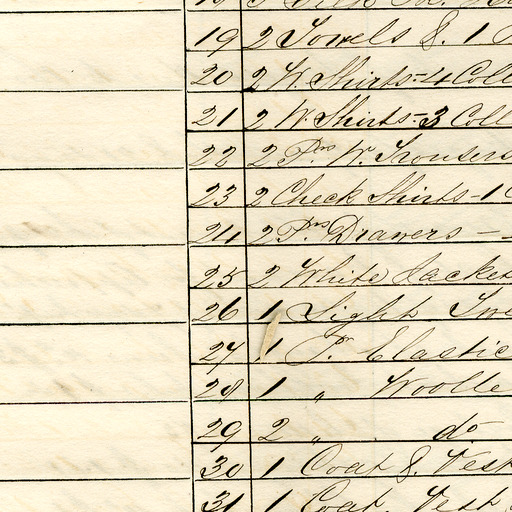 19 2 Towels & 1
20 2 W. Shirts - 4 Coll
21 2 W. Shirts - 3 Coll
22 2 Prs W. Trousers
23 2 Check Shirts - 1
24 2 Prs Drawers -
25 2 White Jacket
26 1 Light Twe
27 1 P. Elastic
28 1 " Woolle
29 2 " do
30 1 Coat & Vest
31 1 Coat, Vest